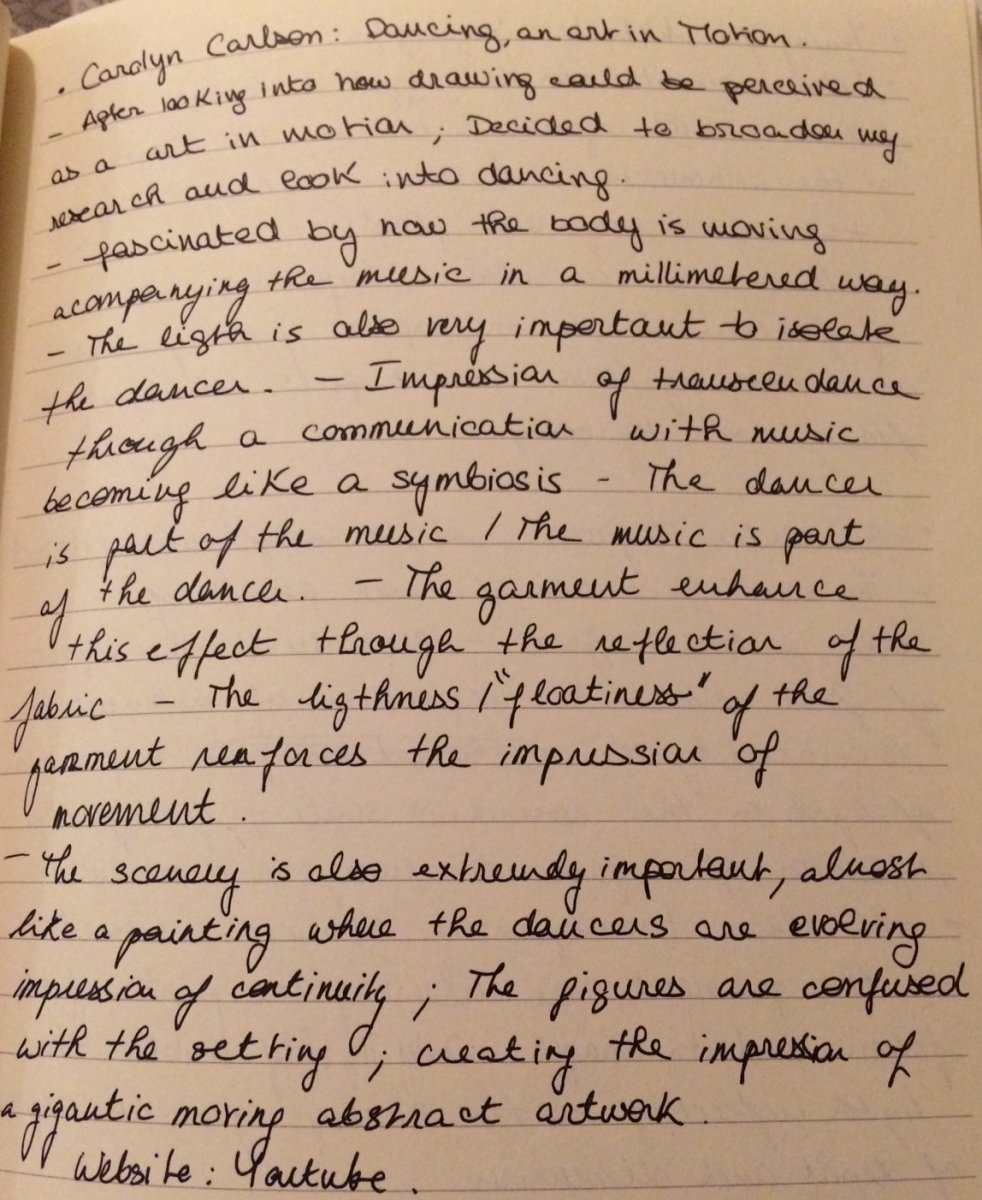 . Carolyn Carlson: Dancing, an art in Motion.
- After looking into how drawing could be perceived
as a art in motion ; Decided to broaden my
research and look into dancing.
- fascinated by how the body is moving
acompanying the music in a millimetered way.
- The ligth is also very important to isolate
the dancer. - Impression of transcendance
through a communication with music
becoming like a symbiosis - The dancer
is part of the music / The music is part
of the dancer. - The garment enhance
this effect through the reflection of the
fabric - The ligthness / "floatiness" of the
garment renforces the impression of
movement.
- The scenery is also extremely important, almost
like a painting where the dancers are evolving
impression of continuity ; The figures are confused
with the setting ; creating the impression of
a gigantic moving abstract artwork.
Website : Youtube.